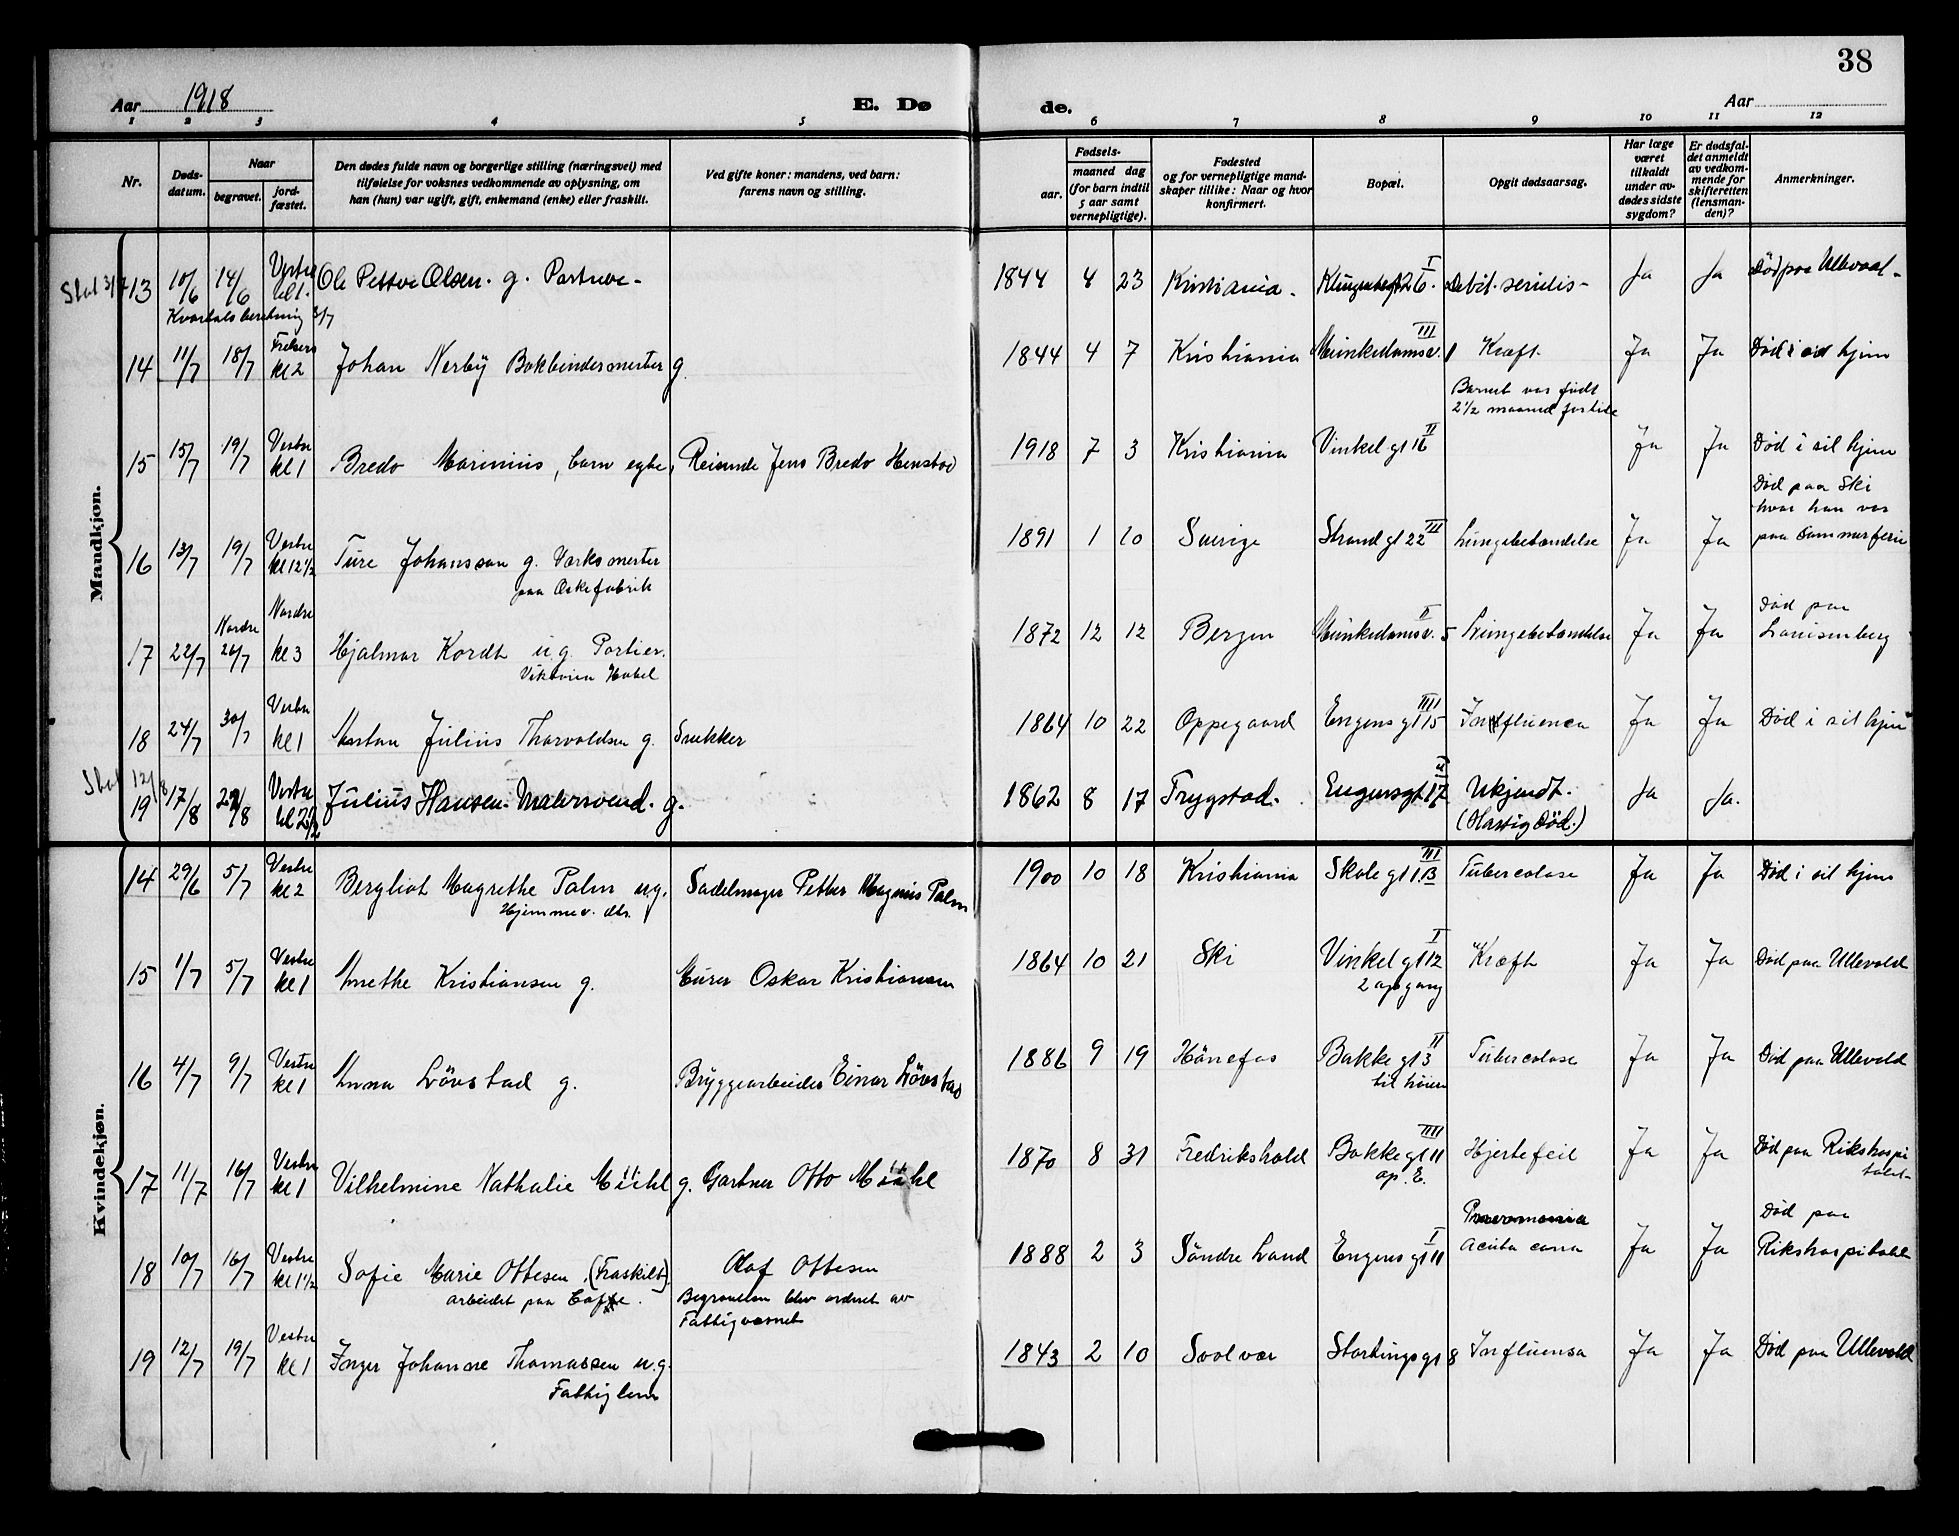 38
Aar 1918
E. Dø
de.
Aar
1 2 3 4 5 6 7 8 9 10 11 12
Nr.
Døds-
datum.
Naar
begravet.
jord-
fæstet.
Den dødes fulde navn og borgerlige stilling (næringsvei) med
tilføielse for voksnes vedkommende av oplysning, om
han (hun) var ugift, gift, enkemand (enke) eller fraskilt.
Ved gifte koner: mandens, ved barn:
farens navn og stilling.
Fødsels-
aar.
maaned dag
(for barn indtil
5 aar samt
vernepligtige).
Fødested
og for vernepligtige mand-
skaper tillike: Naar og hvor
konfirmert.
Bopæl.
Opgit dødsaarsag.
Har læge
været
tilkaldt
under av-
dødes sidste
sygdom?
Er dødsfal-
det anmeldt
av vedkom-
mende for
skifteretten
(lensman-
den)?
Anmerkninger.
Mandkjøn.
13 10/6 14/6 Vestre kl 1. Ole Petter Olsen. g. 1844 4 23 Kristiania. I debit. senilis Ja Ja Død paa Ullevaal
Kvartalsberetning 3/7
14 11/7 18/7 Frelsers kl 2 Johan Nerby Bokbindermester g. 1844 4 7 Kristiania Munkedamsv. 1 III Kræft Ja Ja Død i sit hjem
Barnet var født
2 1/2 maaned for tide
15 15/7 19/7 Vestre kl 1 Bredo Marinius, barn egte, Reisende Jens Bredo 1918 7 3 Kristiania Vinkelgt 16 II Ja Ja Død i sit hjem
16 13/7 19/7 Vestre kl 12 1/2 Ture Johansson g. Verksmester 1891 1 10 Sverige Strandgt 22 III Lungebetændelse Ja Ja Død paa Ski
hvor han var
paa sommerferie
paa Eskefabrik
17 22/7 Nordre 26/7 Nordre kl 3 Hjalmar Kordt u.g. Portier. 1872 12 12 Bergen Munkedamsv. 5 II Lungebetændelse Ja Ja Død paa
Lovisenberg
Viktoria Hotel
18 24/7 30/7 Vestre kl 1 Julius Thorvaldsen g. Snekker 1864 10 22 Oppegaard Engensgt 15 III Influenca Ja Ja Død i sit hjem
12/8
19 17/8 Vestre kl 2 1/2 Julius Hansen. Malersvend. g. 1862 8 17 Trygstad. Engensgt. 17 Ukjendt. Ja Ja.
(Hastig død.)
Kvindekjøn.
14 29/6 5/7 Vestre kl 2 Bergliot Magrethe Palm u.g. Sadelmager Petter Magnus Palm 1900 10 18 Kristiania Skolegt 1.B III Tubercolose Ja Ja Død i sit hjem
Hjemmev. dtr.
15 1/7 5/7 Vestre kl 1 Anethe Kristiansen g. Murer Oskar Kristiansen 1864 10 21 Ski Vinkelgt 12 I Kræft Ja Ja Død paa Ullevold
2 opgang
16 4/7 9/7 Vestre kl 1 Anna Løvstad g. Bryggearbeider Einar Løvstad 1886 9 19 Hønefos Bakkegt 3 II Tubercolose Ja Ja Død paa Ullevold
til høire
17 11/7 16/7 Vestre kl 1 Vilhelmine Nathalie Mühl g. Gartner Otto Mühl 1870 8 31 Fredrikshald Bakkegt 11 IIII Hjertefeil Ja Ja Død paa Rikshospi
talet
op. E.
18 10/7 16/7 Vestre kl 1 1/2 Sofie Marie Ottesen (Fraskilt) Olaf Ottesen 1888 2 3 Søndre Land Engensgt 11 I Acuta Ja Ja Død paa
Rikshospitalet
arbeidet paa Begravelsen blev ordnet av
Fattigvæsnet
19 12/7 19/7 Vestre kl 1 Inger Johanne Thomassen u.g. 1843 2 10 Svolvær Stortingsgt 8 Influensa Ja Ja Død paa Ullevold
Fattiglem